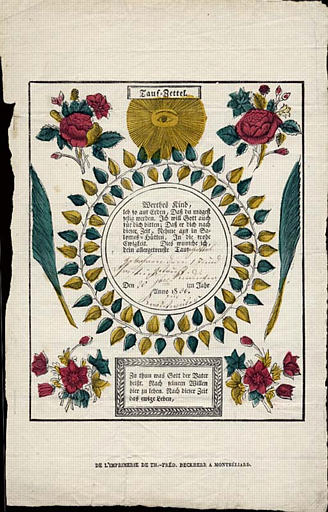 Tauf-Zettel.
Werthes Kind,
leb so auf Erden, Daß du mögest
selig werden. Ich will Gott auch
für dich bitten; Daß er dich nach
dieser Zeit, Nehme auf in Sa-
lomons-Hütten, In die frohe
Ewigkeit. Dies wünsche ich,
dein allergetreuste Tauf
Den im Jahr
Anno 18
Zu thun was Gott der Vater
heißt. Nach seinem Willen
hier zu leben. Nach dieser Zeit
das ewige Leben.
DE L'IMPRIMERIE DE TH.-FRÉD. DECKHERR A MONTBÉLIARD.